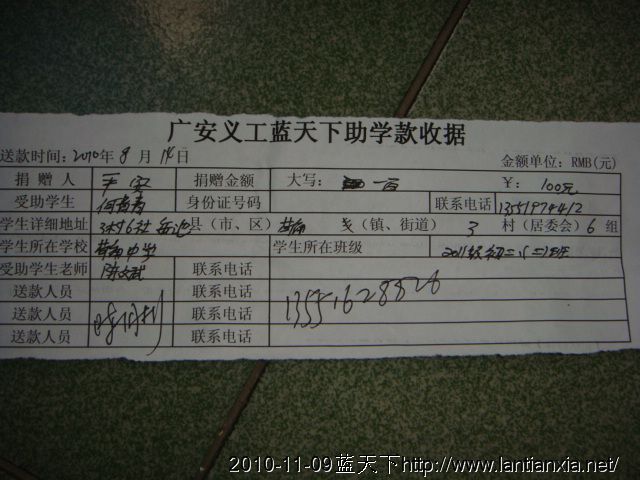 广安义工蓝天下助学款收据
送款时间：2010年8月14日 金额单位：RMB(元)
捐赠人 平安 捐赠金额 大写： 一百 ￥： 100元
受助学生 身份证号码 联系电话 13551974412
学生详细地址 3村6社 岳池县（市、区） （镇、街道） 3 村（居委会）6 组
学生所在学校 中学 学生所在班级 2011级初二（二）班
受助学生老师 陈文武 联系电话
送款人员 联系电话 13551628826
送款人员 联系电话
送款人员 联系电话
2010-11-09蓝天下http://www.lantianxia.net/